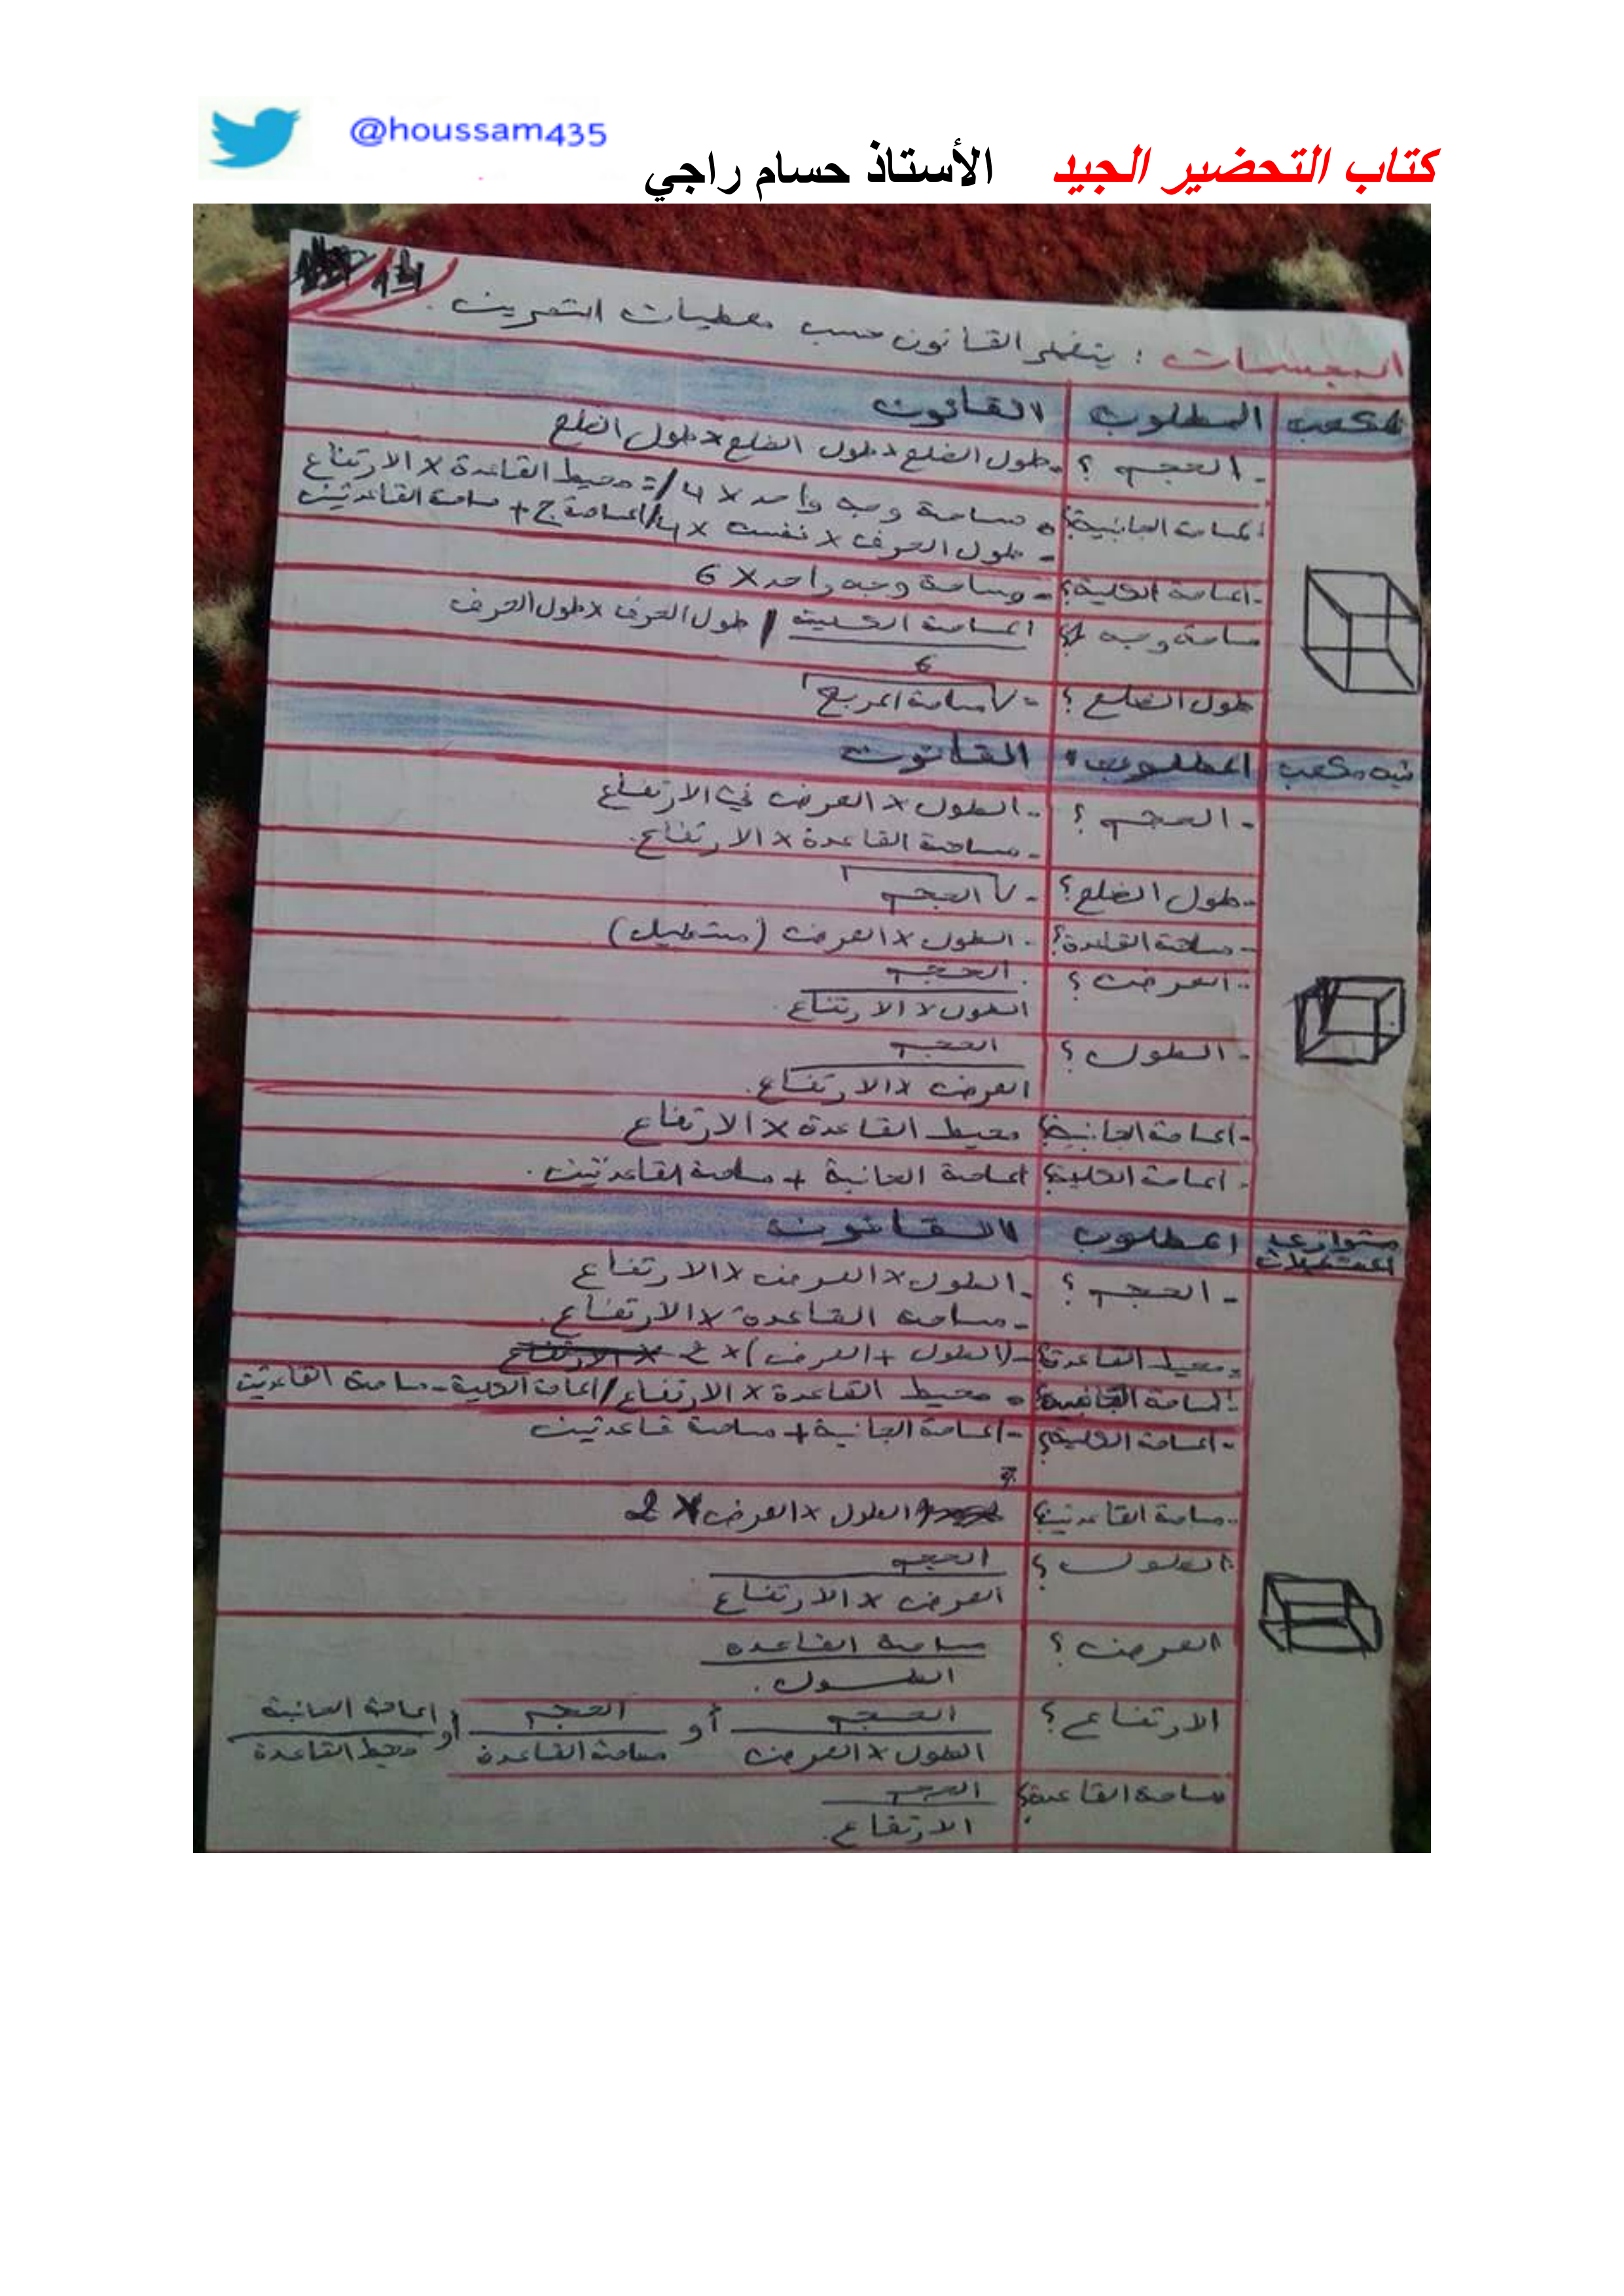 @houssam435
كتاب التحضير الجيد الأستاذ حسام راجي
المجسمات : يتغير القانون حسب معطيات التمرين .
مكعب المطلوب القانون
- الحجم ؟ - طول الضلع × طول الضلع × طول الضلع
المساحة الجانبية؟ • مساحة وجه واحد × 4 /= محيط القاعدة × الارتفاع
- المساحة الكلية؟ - طول الحرف × نفسه × 4 / المساحة ج + مساحة القاعدتين
- مساحة وجه واحد × 6
مساحة وجه 1؟ المساحة الكلية / طول الحرف × طول الحرف
6
طول الضلع ؟ - √مساحة المربع
شبه مكعب المطلوب القانون
- الحجم ؟ - الطول × العرض في الارتفاع
- مساحة القاعدة × الارتفاع.
- طول الضلع ؟ - √الحجم
- مساحة القاعدة؟ - الطول × العرض (مستطيل)
- العرض ؟ الحجم
الطول × الارتفاع
- الطول ؟ الحجم
العرض × الارتفاع.
- المساحة الجانبية؟ محيط القاعدة × الارتفاع
- المساحة الكلية؟ المساحة الجانبية + مساحة القاعدتين .
متوازي المستطيلات المطلوب القانون
- الحجم ؟ - الطول × العرض × الارتفاع
- مساحة القاعدة × الارتفاع.
- محيط القاعدة؟ - (الطول + العرض) × 2 × الارتفاع
- المساحة الجانبية؟ • محيط القاعدة × الارتفاع / المساحة الكلية - مساحة القاعدتين
- المساحة الكلية؟ - المساحة الجانبية + مساحة قاعدتين
- مساحة القاعدتين؟ الطول × العرض × 2
الطول ؟ الحجم
العرض × الارتفاع
العرض ؟ مساحة القاعدة
الطول .
الارتفاع ؟ الحجم أو الحجم أو المساحة الجانبية
الطول × العرض مساحة القاعدة محيط القاعدة
مساحة القاعدة؟ الحجم
الارتفاع.